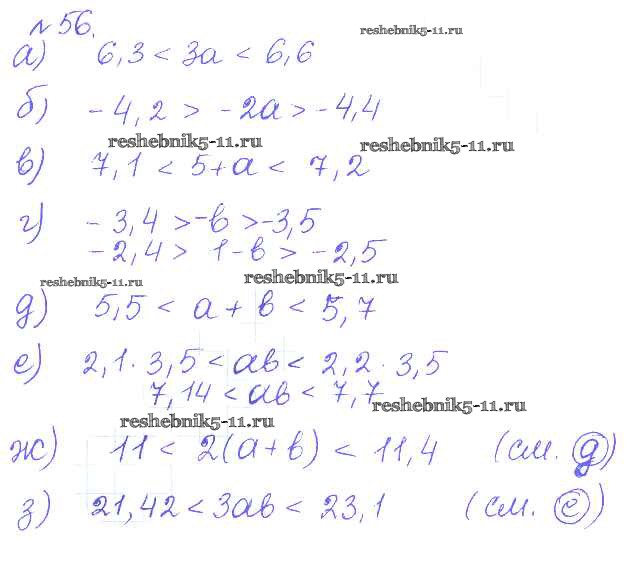 №56.
reshebnik5-11.ru
а) 6,3 < 3a < 6,6
б) -4,2 > -2a > -4,4
reshebnik5-11.ru reshebnik5-11.ru
в) 7,1 < 5+a < 7,2
г) -3,4 > -b > -3,5
-2,4 > 1-b > -2,5
reshebnik5-11.ru reshebnik5-11.ru
д) 5,5 < a + b < 5,7
е) 2,1 · 3,5 < ab < 2,2 · 3,5
7,14 < ab < 7,7
reshebnik5-11.ru reshebnik5-11.ru
ж) 11 < 2(a+b) < 11,4 (см. д)
з) 21,42 < 3ab < 23,1 (см. е)